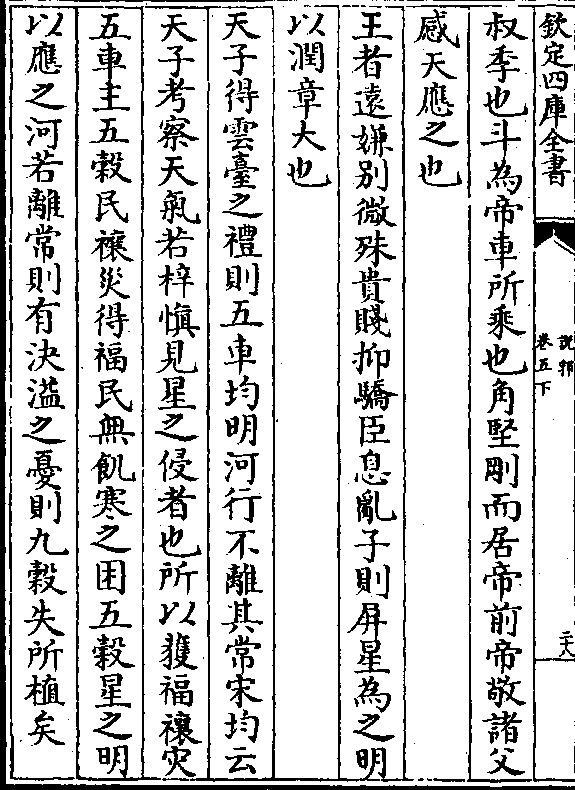 欽定四庫全書
說郛
卷五下
二十八
叔季也斗為帝車所乘也角堅剛而居帝前帝敬諸父
感天應之也
王者遠嫌別微殊貴賤抑驕臣息亂子則屏星為之明
以潤章大也
天子得雲臺之禮則五車均明河行不離其常宋均云
天子考察天氣若梓慎見星之侵者也所以獲福禳灾
五車主五穀民禳災得福民無飢寒之困五穀星之明
以應之河若離常則有決溢之憂則九穀失所植矣